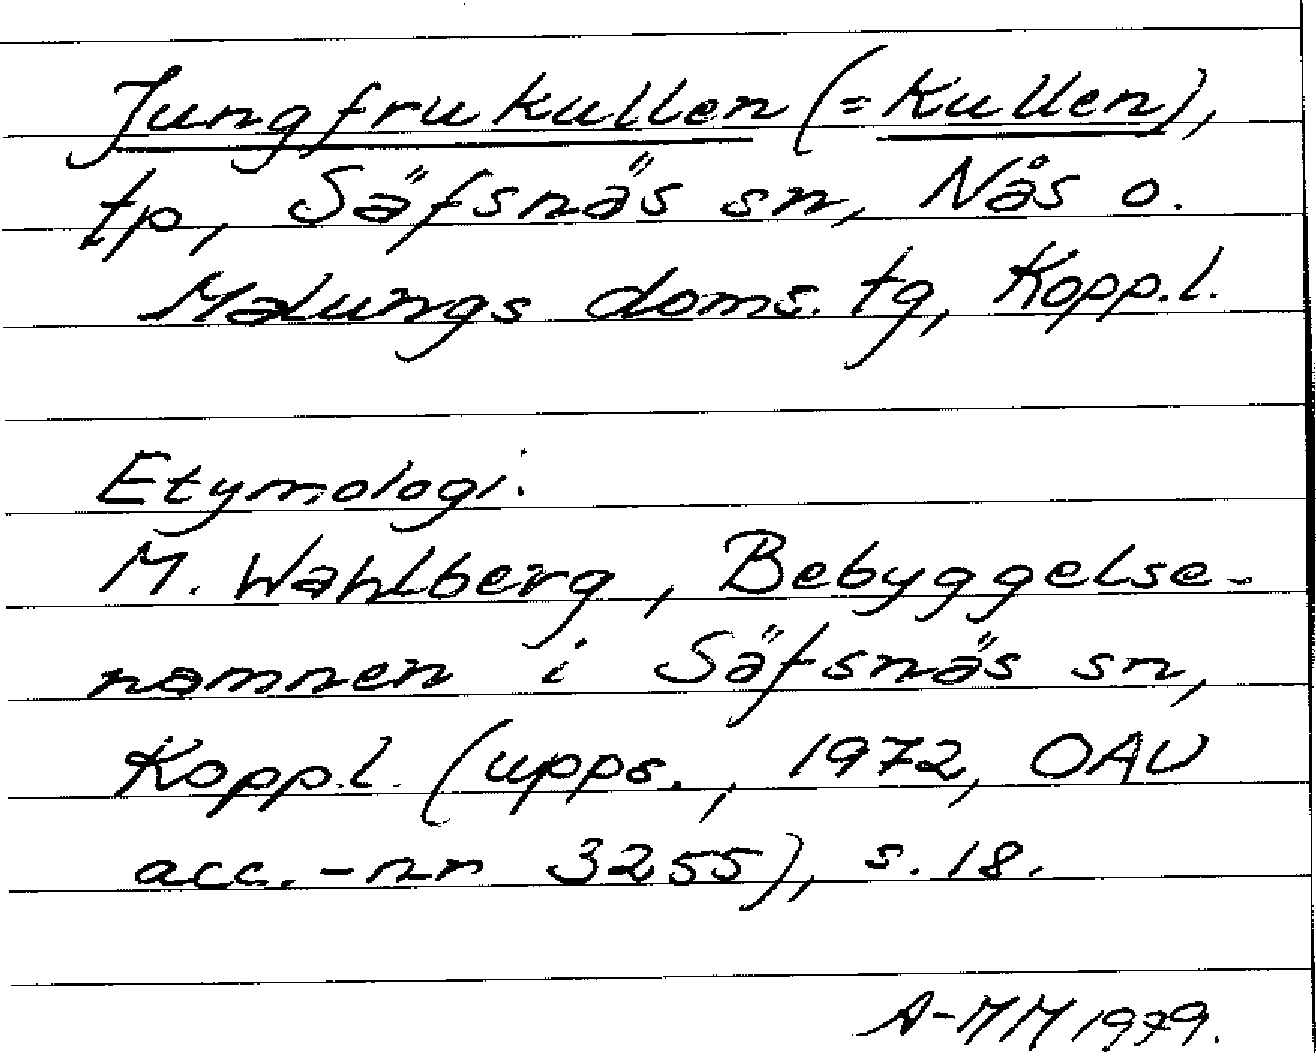 Jungfrukullen (= Kullen),
tp, Säfsnäs sn, Nås o.
Malungs doms. tg, Kopp.l.
Etymologi.
M. Wahlberg, Bebyggelse-
namnen i Säfsnäs sn,
Kopp.l. (upps., 1972, OAU
acc.-nr 3255), s. 18.
A-MM 1979.